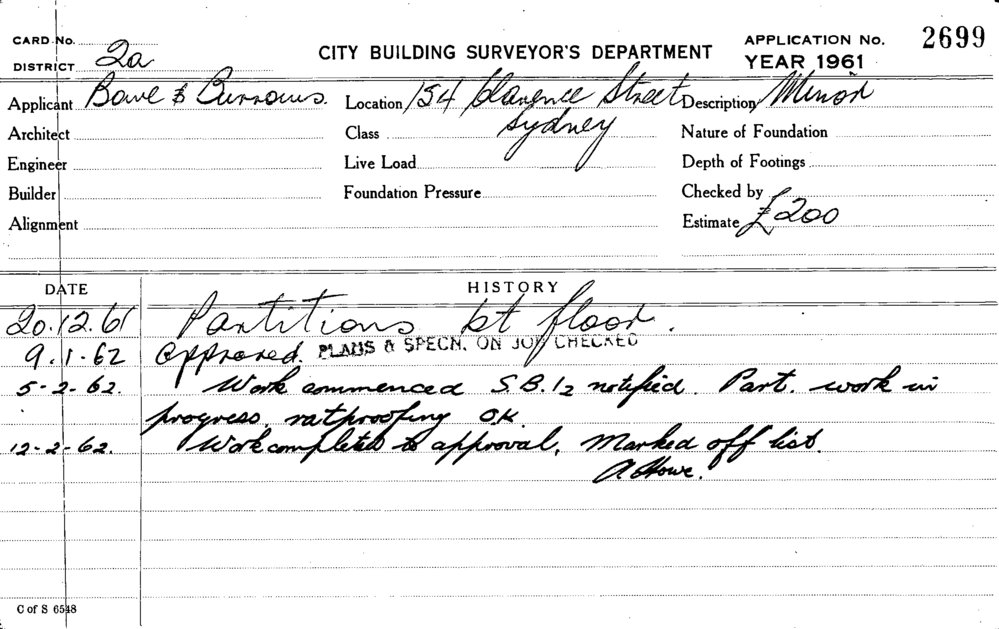 CARD No.
DISTRICT 2a
CITY BUILDING SURVEYOR'S DEPARTMENT
APPLICATION No. 2699
YEAR 1961
Applicant Bowe & Burrows. Location 154 Clarence Street Sydney Description Minor
Architect Class Nature of Foundation
Engineer Live Load Depth of Footings
Builder Foundation Pressure Checked by
Alignment Estimate £200
DATE HISTORY
20.12.61 Partitions 1st floor.
9.1.62 Approved. PLANS & SPECN. ON JOB CHECKED
5-2-62. Work commenced S.B.12 notified. Part. work in
progress, ratproofing O.K.
12-2-62. Work completed to approval, Marked off list.
A Howe.
C of S 6548